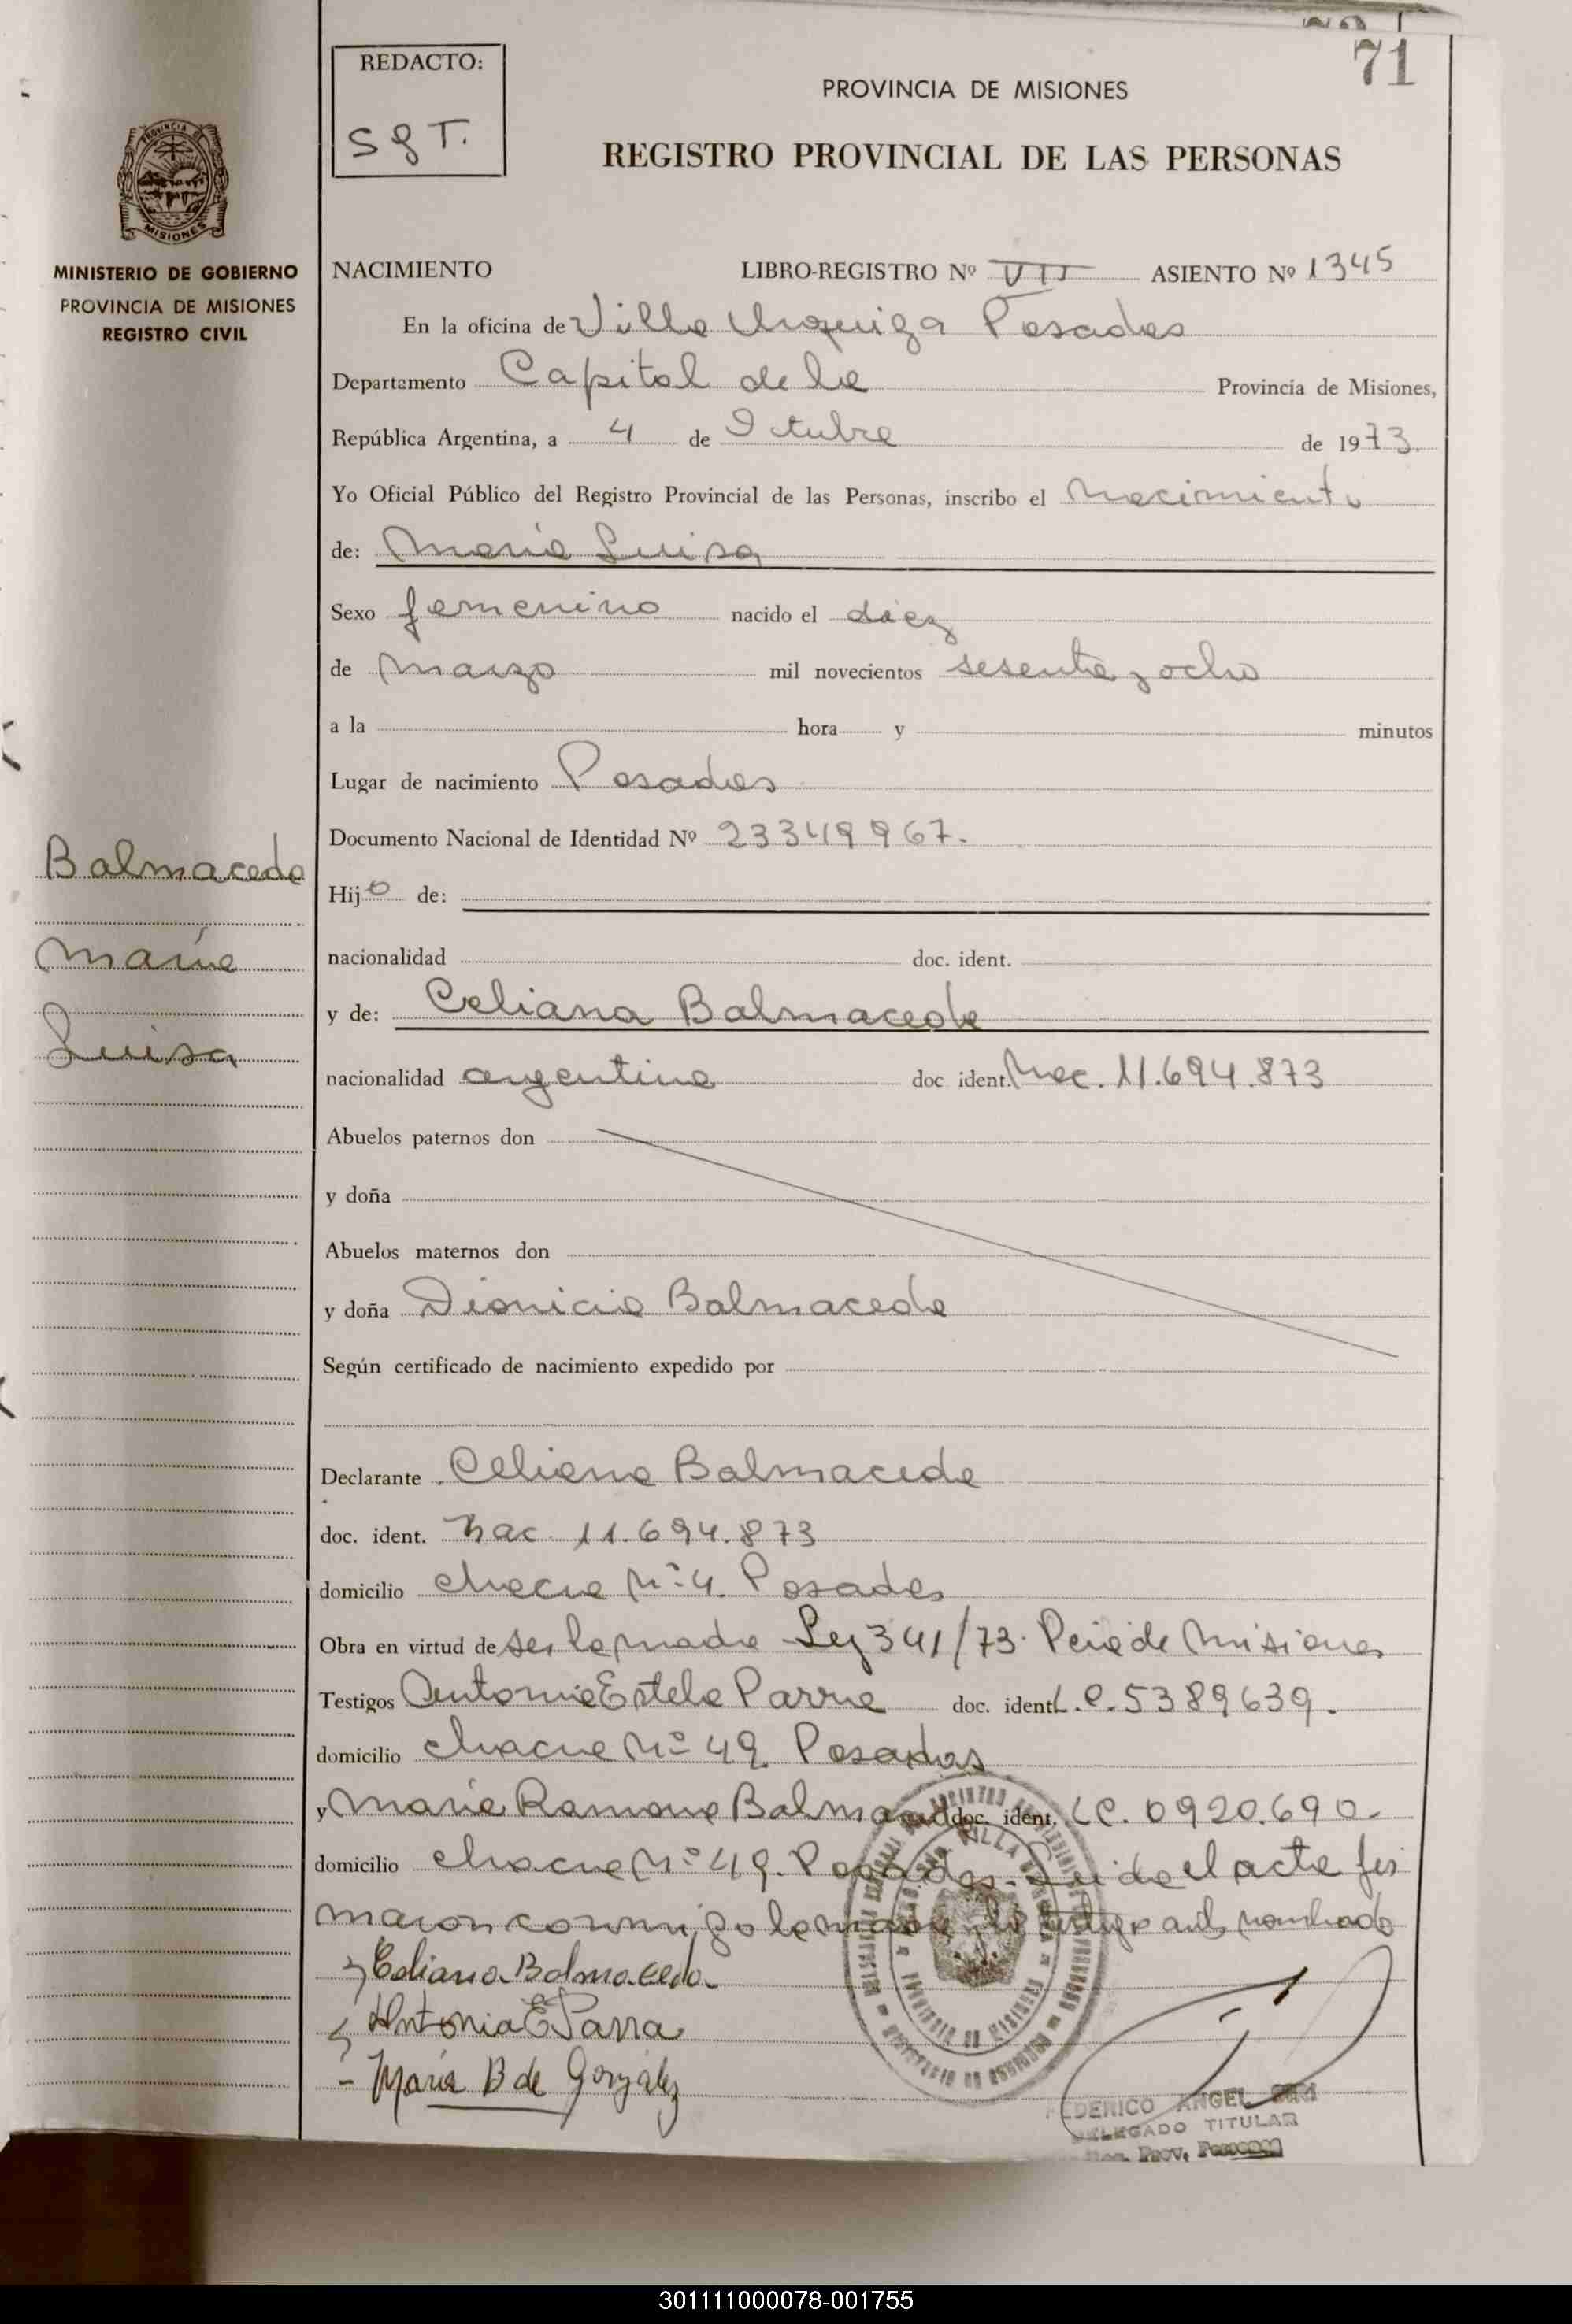 71
REDACTO:
SGT.
PROVINCIA DE MISIONES
REGISTRO PROVINCIAL DE LAS PERSONAS
PROVINCIA DE
MISIONES
MINISTERIO DE GOBIERNO
PROVINCIA DE MISIONES
REGISTRO CIVIL
Balmaceda
María
Luisa
NACIMIENTO LIBRO-REGISTRO Nº VII ASIENTO Nº 1345
En la oficina de Villa Urquiza Posadas
Departamento Capital de la Provincia de Misiones,
República Argentina, a 4 de Octubre de 1973.
Yo Oficial Público del Registro Provincial de las Personas, inscribo el Nacimiento
de: María Luisa
Sexo femenino nacido el diez
de marzo mil novecientos sesenta y ocho
a la hora y minutos
Lugar de nacimiento Posadas
Documento Nacional de Identidad Nº 23349967.
Hija de:
nacionalidad doc. ident.
y de: Celiana Balmaceda
nacionalidad argentina doc ident. Nac. 11.694.873
Abuelos paternos don
y doña
Abuelos maternos don
y doña Dionicia Balmaceda
Según certificado de nacimiento expedido por
Declarante Celiana Balmaceda
doc. ident. Nac. 11.694.873
domicilio chacra Nº 4. Posadas
Obra en virtud de ser la madre Ley 341/73. Pcia de Misiones
Testigos Antonia Estela Parra doc. ident L.C. 5389639.
domicilio chacra Nº 49 Posadas
y María Ramona Balmaceda doc. ident. LC. 0920.690.
domicilio chacra Nº 49. Posadas. Leida el acta fir
maron conmigo la madre y los testigos ant. nombrado
Celiana Balmaceda
Antonia E Parra
María B de González
FEDERICO ANGEL
DELEGADO TITULAR
Reg. Prov. Personas
301111000078-001755